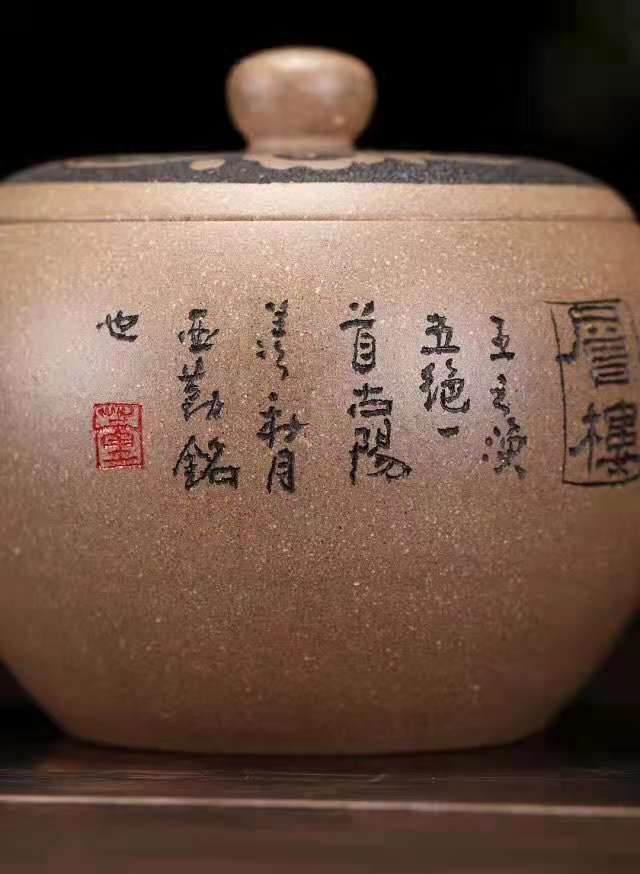 層樓
王之渙
五绝一
首陽
羡秋月
亚勤銘
也